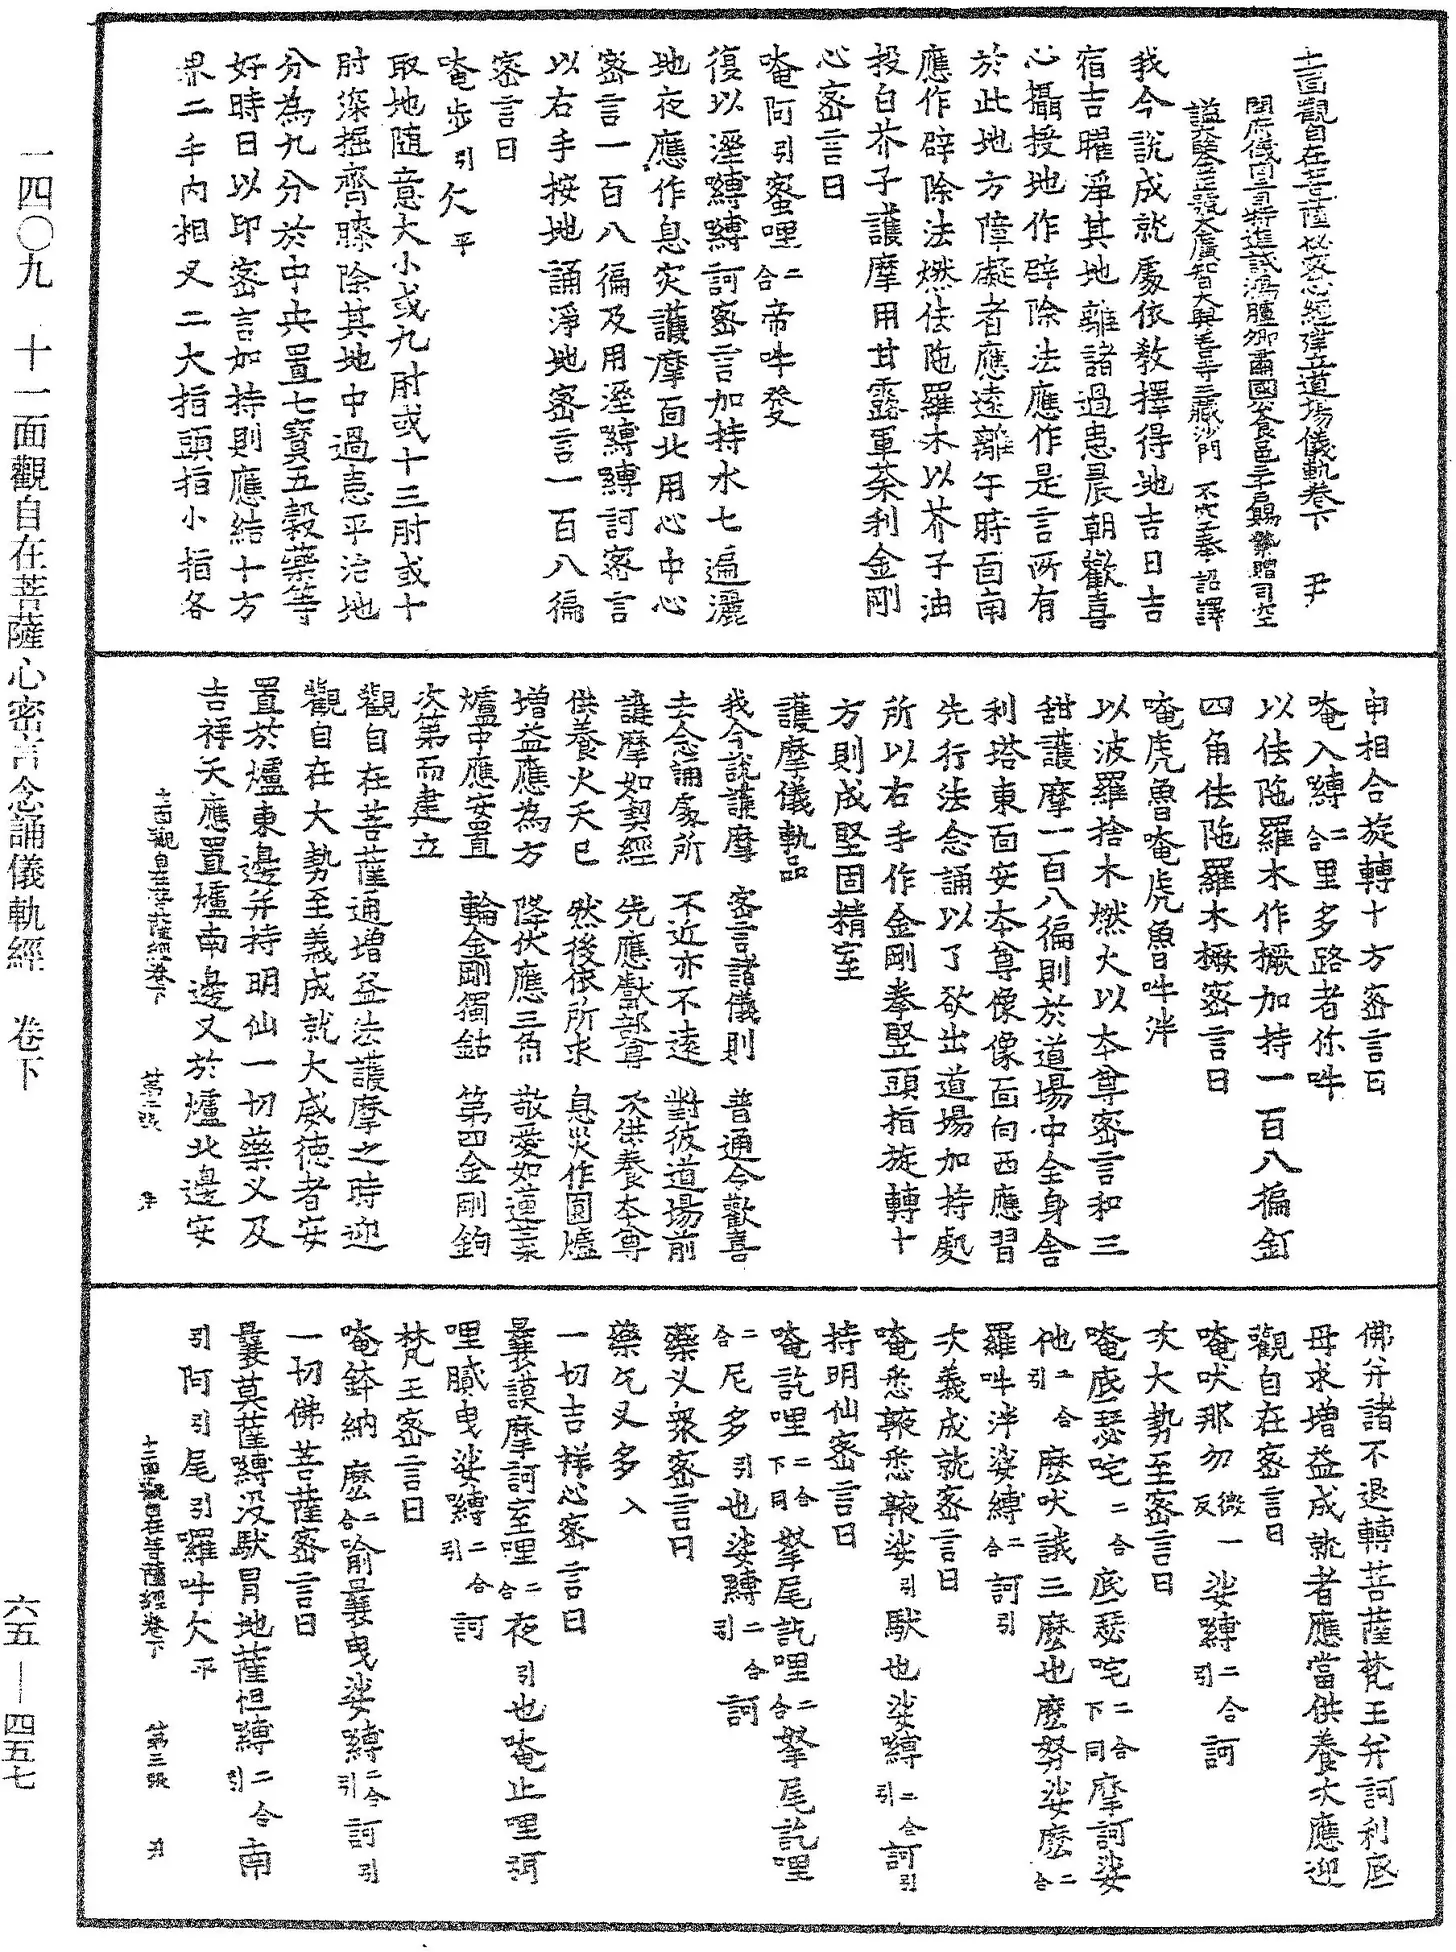 十一面觀自在菩薩秘密心經建立道場儀軌卷下　尹
開府儀同三司特進試鴻臚卿肅國公食邑三千戶賜紫贈司空
謚大鑒正號大廣智大興善寺三藏沙門　不空奉　詔譯
我今說成就處依教擇得地吉日吉
宿吉曜淨其地離諸過患晨朝歡喜
心攝授地作辟除法應作是言所有
於此地方障礙者應遠離午時面南
應作辟除法燃佉陁羅木以芥子油
投白芥子護摩用甘露軍荼利金剛
心密言曰
唵阿引蜜哩二合帝吽發
復以溼縛縛訶密言加持水七遍灑
地夜應作息灾護摩面北用心中心
密言一百八徧及用溼縛縛訶密言
以右手按地誦淨地密言一百八徧
密言曰
唵步引欠平
取地隨意大小或九肘或十三肘或十
肘深掘齊膝除其地中過患平治地
分為九分於中央置七寶五穀藥等
好時日以印密言加持則應結十方
界二手內相叉二大指頭指小指各
申相合旋轉十方密言曰
唵入縛二合里多路者你吽
以佉陁羅木作橛加持一百八徧釘
四角佉陁羅木橛密言曰
唵虎魯唵虎魯吽泮
以波羅捨木燃火以本尊密言和三
甜護摩一百八徧則於道場中全身舍
利塔東面安本尊像像面向西應習
先行法念誦以了欲出道場加持處
所以右手作金剛拳竪頭指旋轉十
方則成堅固精室
護摩儀軌品
我今說護摩　密言諸儀則　普通令歡喜
去念誦處所　不近亦不遠　對彼道場前
護摩如契經　先應獻部尊　次供養本尊
供養火天已　然後依所求　息災作圓爐
增益應為方　降伏應三角　敬愛如蓮葉
爐中應安置　輪金剛獨鈷　第四金剛鉤
次第而建立
觀自在菩薩通增益法護摩之時迎
觀自在大勢至義成就大威德者安
置於爐東邊并持明仙一切藥叉及
吉祥天應置爐南邊又於爐北邊安
十一面觀自在菩薩經卷下　第二張　尹
佛并諸不退轉菩薩梵王并訶利底
母求增益成就者應當供養次應迎
觀自在密言曰
唵吠那勿微一反娑縛二合引訶
次大勢至密言曰
唵底瑟咤二合底瑟咤二合下同摩訶娑
他二合引麼吠誐三麼也麼努娑麼二合
羅吽泮娑縛二合訶引
次義成就密言曰
唵悉鞅悉鞅娑引馱也娑縛二合引訶引
持明仙密言曰
唵訖哩二合下同拏尾訖哩二合拏尾訖哩
二合尼多引也娑縛二合引訶
藥叉衆密言曰
藥乞叉多入
一切吉祥心密言曰
曩謨摩訶室哩二合夜引也唵止哩弭
哩膩曳娑縛二合引訶
梵王密言曰
唵鉢納麼二合喻曩曳娑縛二合引訶引
一切佛菩薩密言曰
曩莫薩縛沒馱冒地薩怛縛二合引南
引阿引尾引羅吽欠平
十一面觀自在菩薩經卷下　第三張　尹
一四〇九　十一面觀自在菩薩心密言念誦儀軌經　卷下　六五—四五七